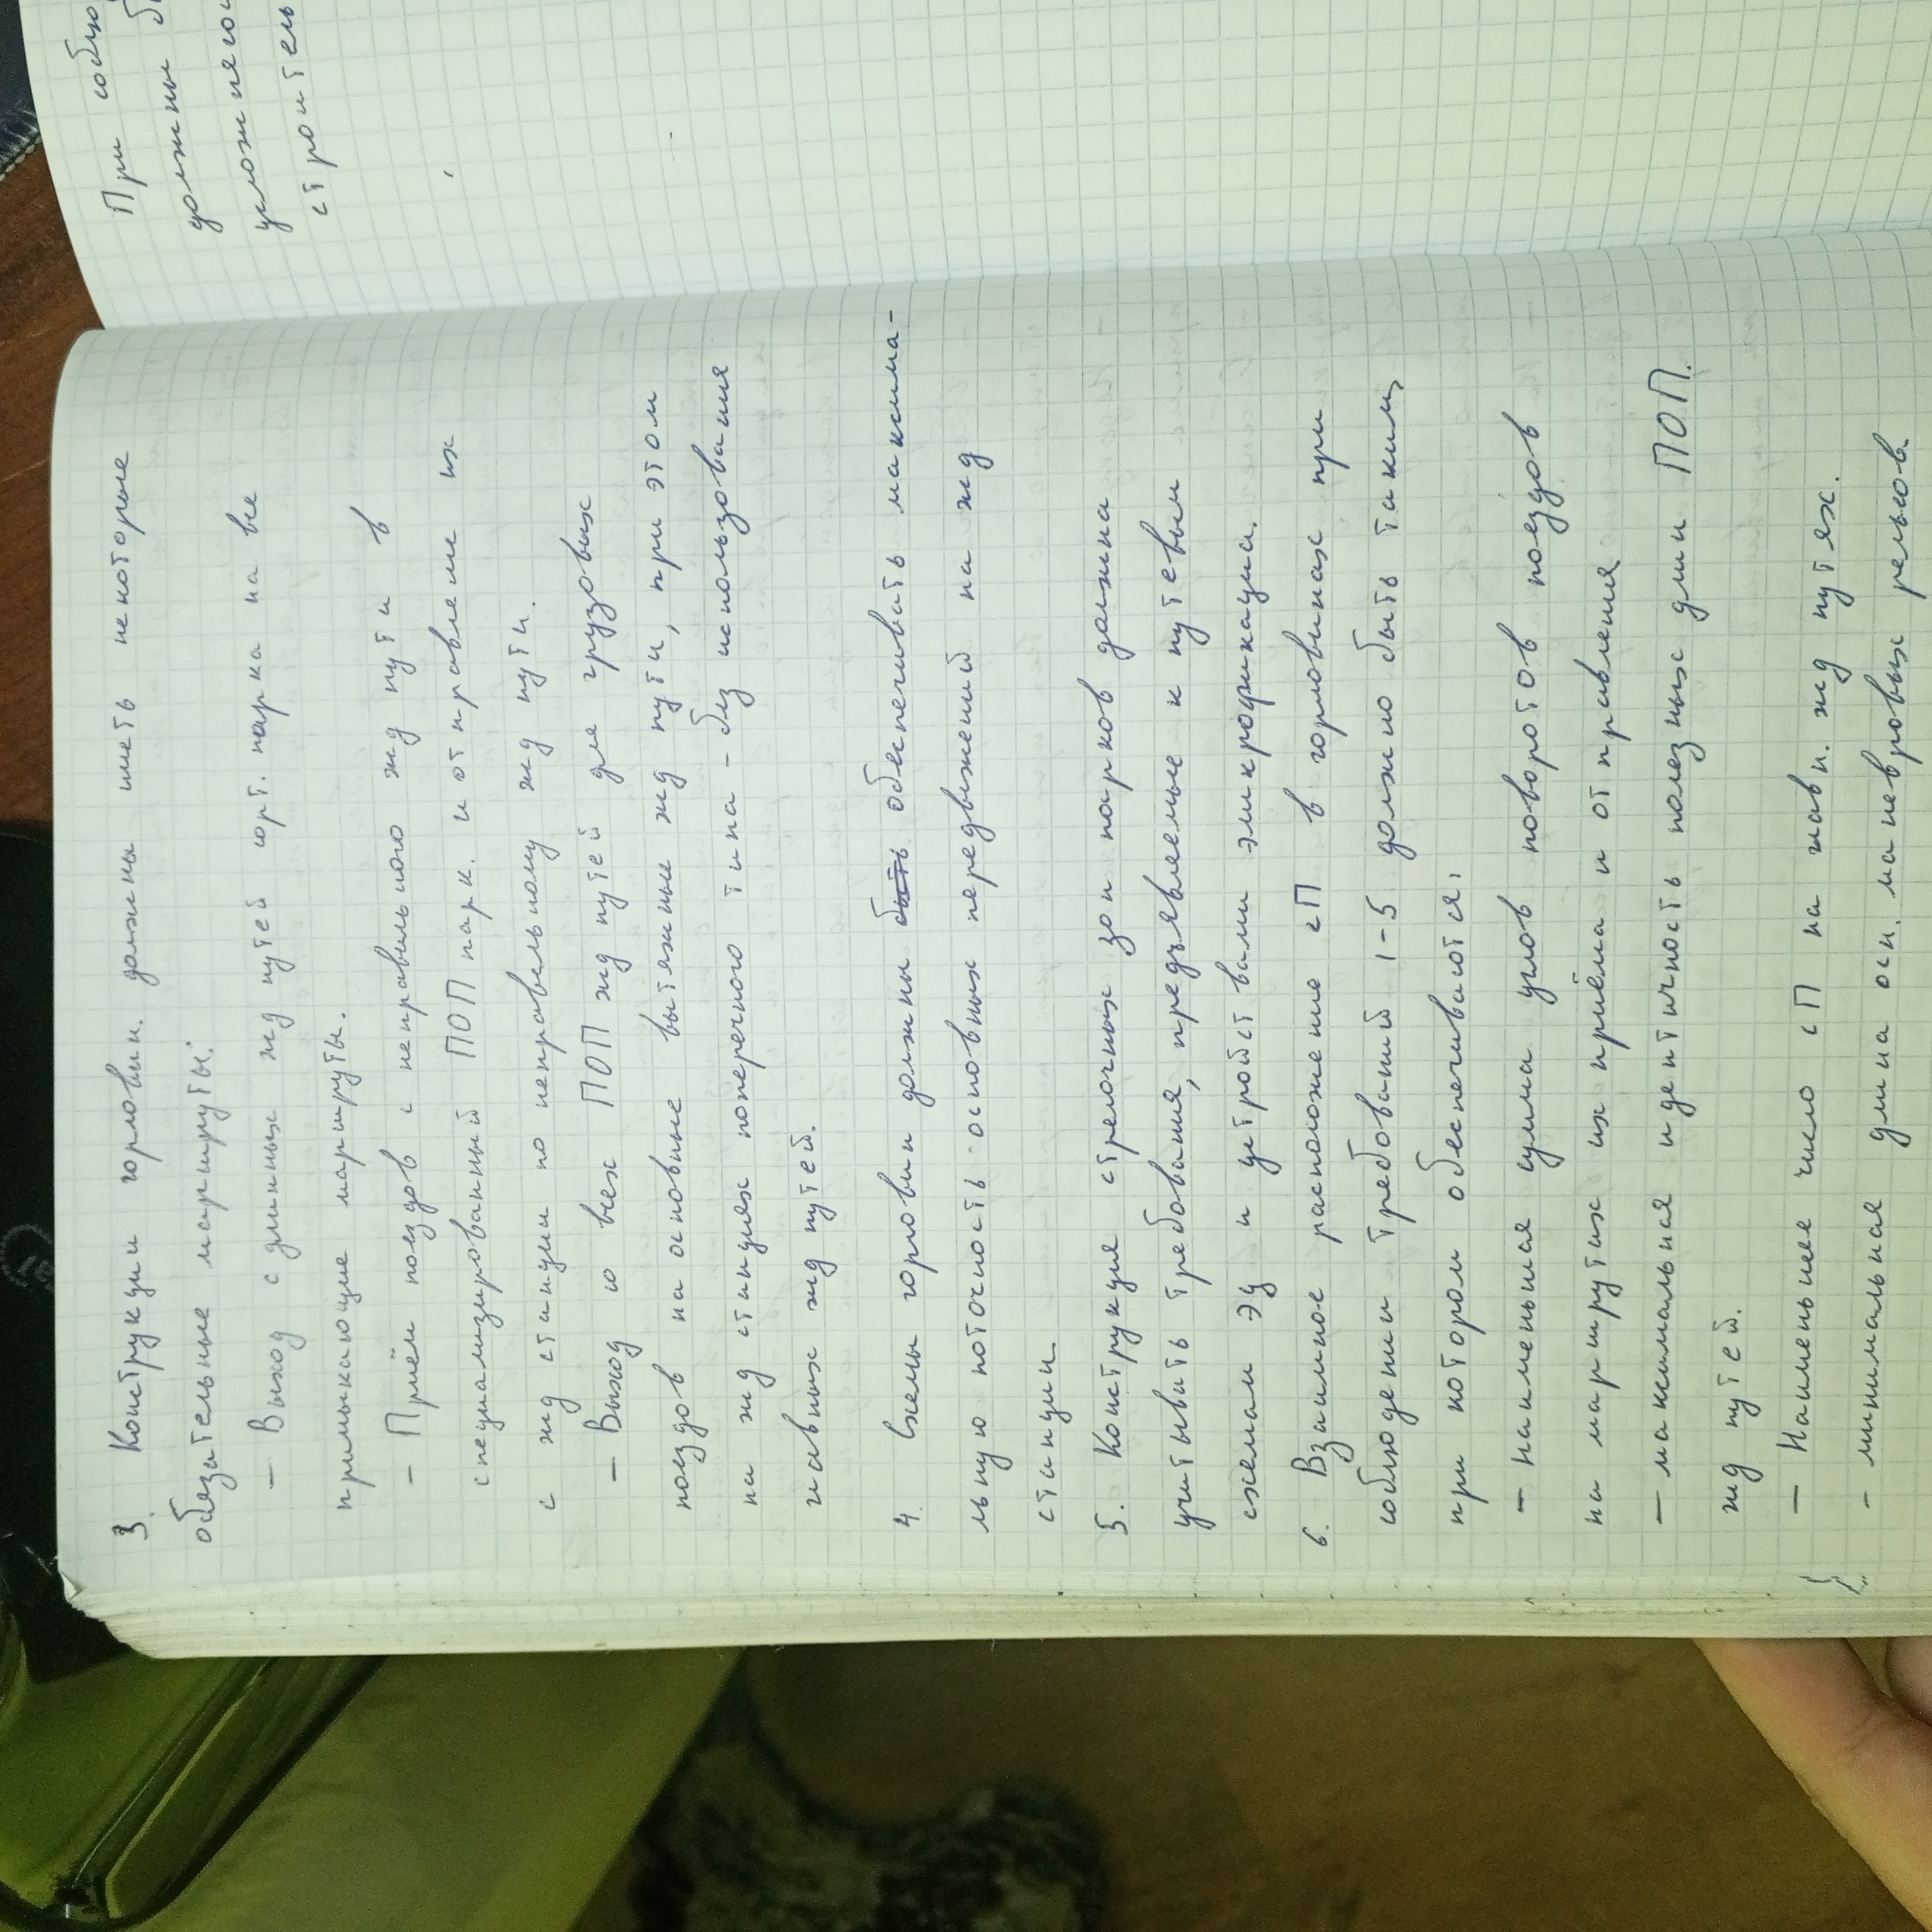 3. Конструкции горловин. должны иметь некоторые
обязательные маршруты:
- Выход с длинных жд путей сорт. парка на все
примыкающие маршруты.
- Приём поездов с неправильного жд пути в
специализированный ПОП парк. и отправление их
с жд станции по неправильному жд пути.
- Выход со всех ПОП жд путей для грузовых
поездов на основные вытяжные жд пути, при этом
на жд станциях поперечного типа - без использования
главных жд путей.
4. Схемы горловин должны быть обеспечивать максима-
льную поточность основных передвижений на жд
станции.
5. Конструкция стрелочных зон парков должна
учитывать требования, предъявляемые к путевым
схемам ЭЦ и устройствами электрофикации.
6. Взаимное расположение СП в горловинах при
соблюдении требований 1-5 должно быть таким,
при котором обеспечиваются:
- наименьшая сумма углов поворотов поездов
на маршрутах их приёма и отправления
- максимальная идентичность полезных длин ПОП.
жд путей.
- Наименьшее число СП на главн. жд путях.
- минимальная длина осн. маневровых рейсов.
При соблю
должны
усложняю
строитель